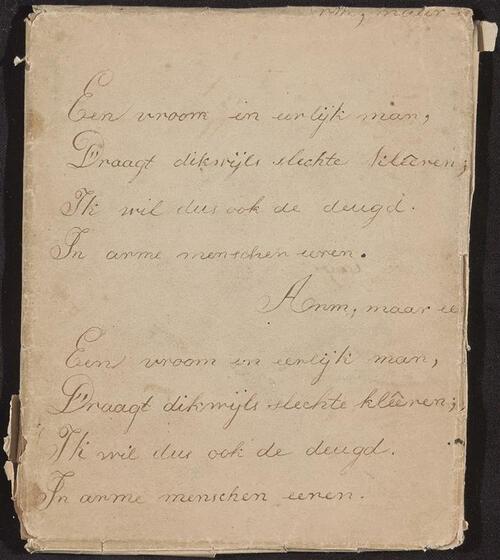 maar
Een vroom en eerlijk man,
Draagt dikwijls slechte kleêren;
Ik wil dus ook de deugd.
In arme menschen eeren.
Arm, maar ee
Een vroom en eerlijk man,
Draagt dikwijls slechte kleêren;
Ik wil dus ook de deugd.
In arme menschen eeren.